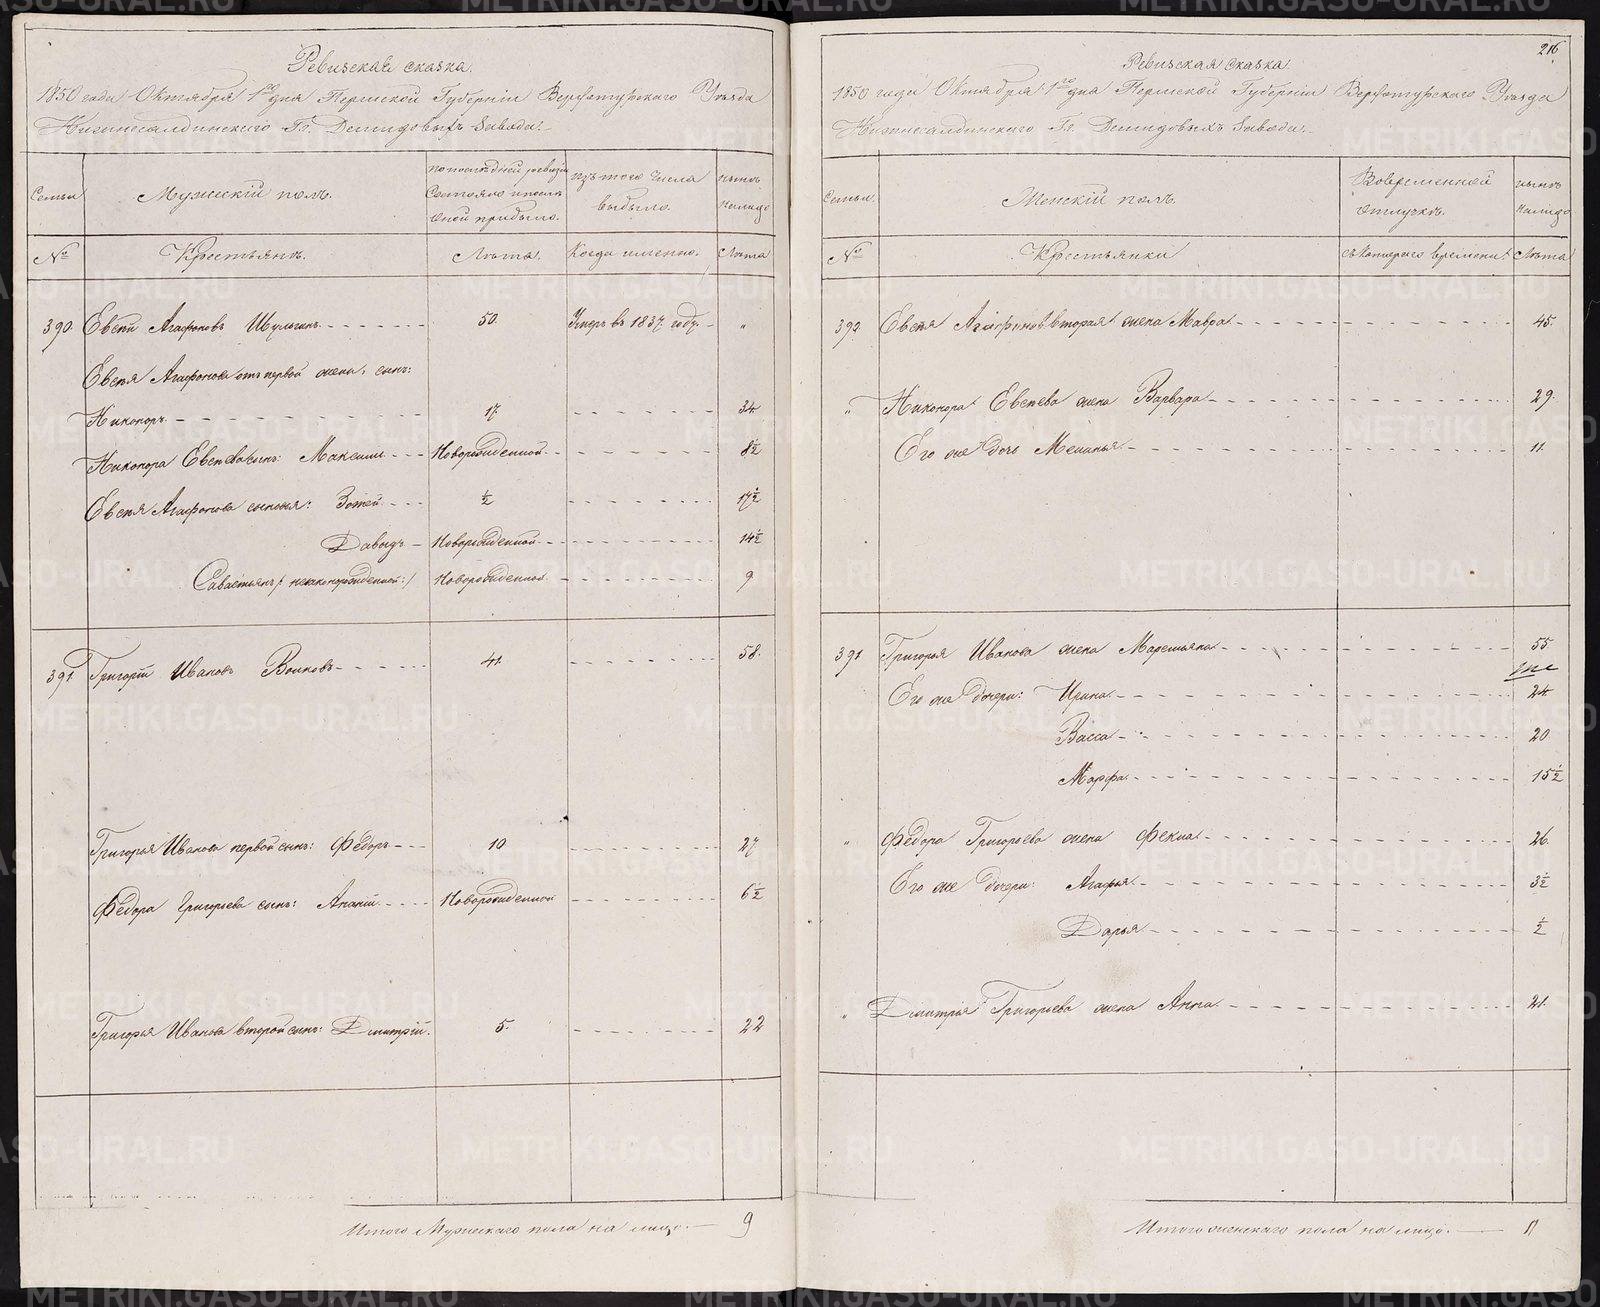 Ревизская сказка.
1850 года Октября 1го дня Пермской Губернии Верхотурского Уѣзда
Нижнесалдинскаго Гг. Демидовыхъ Завода.
Семьи
Мужескій полъ.
По последней ревизіи
Состояло и послѣ
оной прибыло.
Изъ того числа
выбыло.
Нынѣ
на лицо
№
Крестьянъ.
Лѣта.
Когда именно.
Лѣта
390. Евсѣй Агафоновъ Шульгинъ 50. Умеръ въ 1837 году "
Евсѣя Агафонова отъ первой жены, сынъ:
Никоноръ 17 34
Никонора Евсѣева сынъ: Максимъ Новорожденной 8½
Евсѣя Агафонова сыновья: Зотей ½ 17½
Давыдъ Новорожденной 14½
Савастьянъ /:незаконорожденной:/ Новорожденной 9
391. Григорій Ивановъ Волковъ 41. 58.
Григорья Иванова первой сынъ: Фёдоръ 10 27
Фёдора Григорьева сынъ: Ананій Новорожденной 6½
Григорья Иванова второй сынъ: Дмитрій. 5. 22
Итого Мужескаго пола на лицо. 9
216
Ревизская сказка
1850 года Октября 1го дня Пермской Губерніи Верхотурского Уѣзда
Нижнесалдинскаго Гг. Демидовыхъ Завода.
Семьи.
Женскій полъ.
Вовременной
отлучкѣ.
Нынѣ
на лицо
№
Крестьянки
съ котораго времени.
Лѣта
392 Евсѣя Агафонова вторая жена Мавра 45.
" Никонора Евсѣева жена Варвара 29.
Его же дочь Меланья 11.
391 Григорья Иванова жена Маремьяна 55
Его же дочери: Ирина 24
Васса 20
Марфа 15½
" Фёдора Григорьева жена Фекла 26.
Его же дочери: Агафья 3½
Дарья ½
" Дмитрія Григорьева жена Анна 21.
Итого женскаго пола на лицо. 11
METRIKI.GASO-URAL.RU